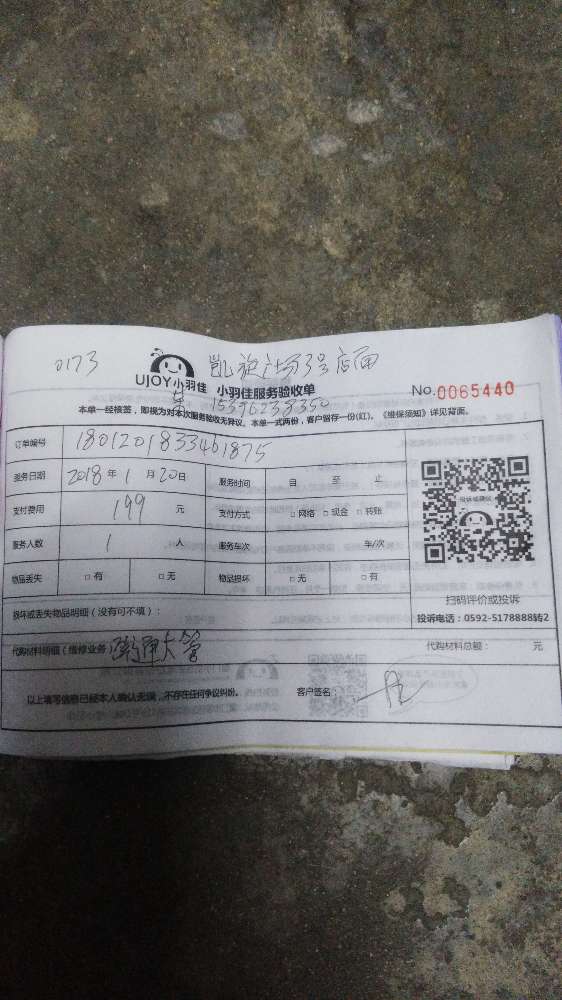 0173 凯旋广场3号店面
UJOY小羽佳 小羽佳服务验收单 No.0065440
15396238350
本单一经核签，即视为对本次服务验收无异议。本单一式两份，客户留存一份(红)。《维保须知》详见背面。
订单编号 1801201833461875
服务日期 2018年1月20日 服务时间 自 至 止
支付费用 199 元 支付方式 □网络 □现金 □转账
服务人数 1 人 服务车次 车/次
物品丢失 □有 □无 物品损坏 □无 □有
扫码评价或投诉
损坏或丢失物品明细（没有可不填）： 投诉电话：0592-5178888转2
代购材料明细（维修业务） 疏通大管 代购材料总额： 元
以上填写信息已经本人确认无误，不存在任何争议纠纷。 客户签名：